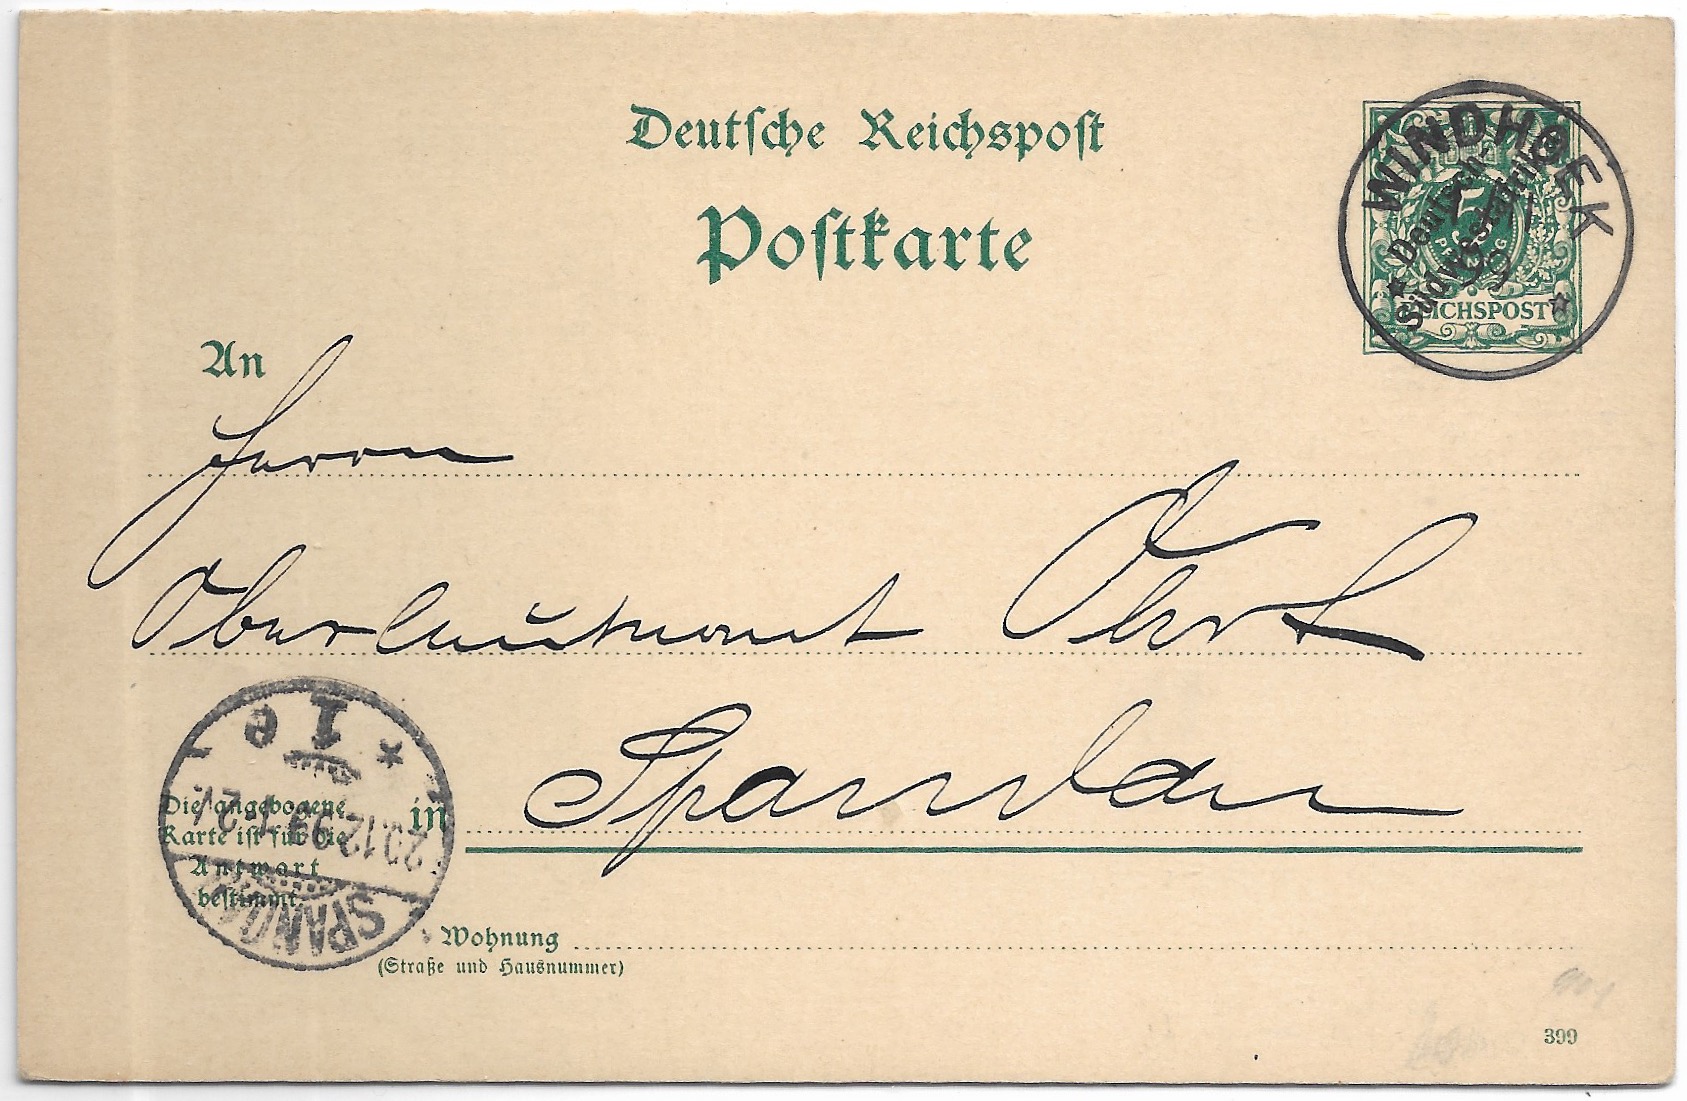 Deutsche Reichspost
Postkarte
WINDHOEK
Deutsch-
Südwestafrika
5
PFENNIG
99
REICHSPOST
An
Herrn
Oberleutnant Ohrt
Spandau
in
Die angebogene
Karte ist für die
Antwort
bestimmt.
SPANDAU
20.12.99
1 e
Wohnung
(Straße und Hausnummer)
399